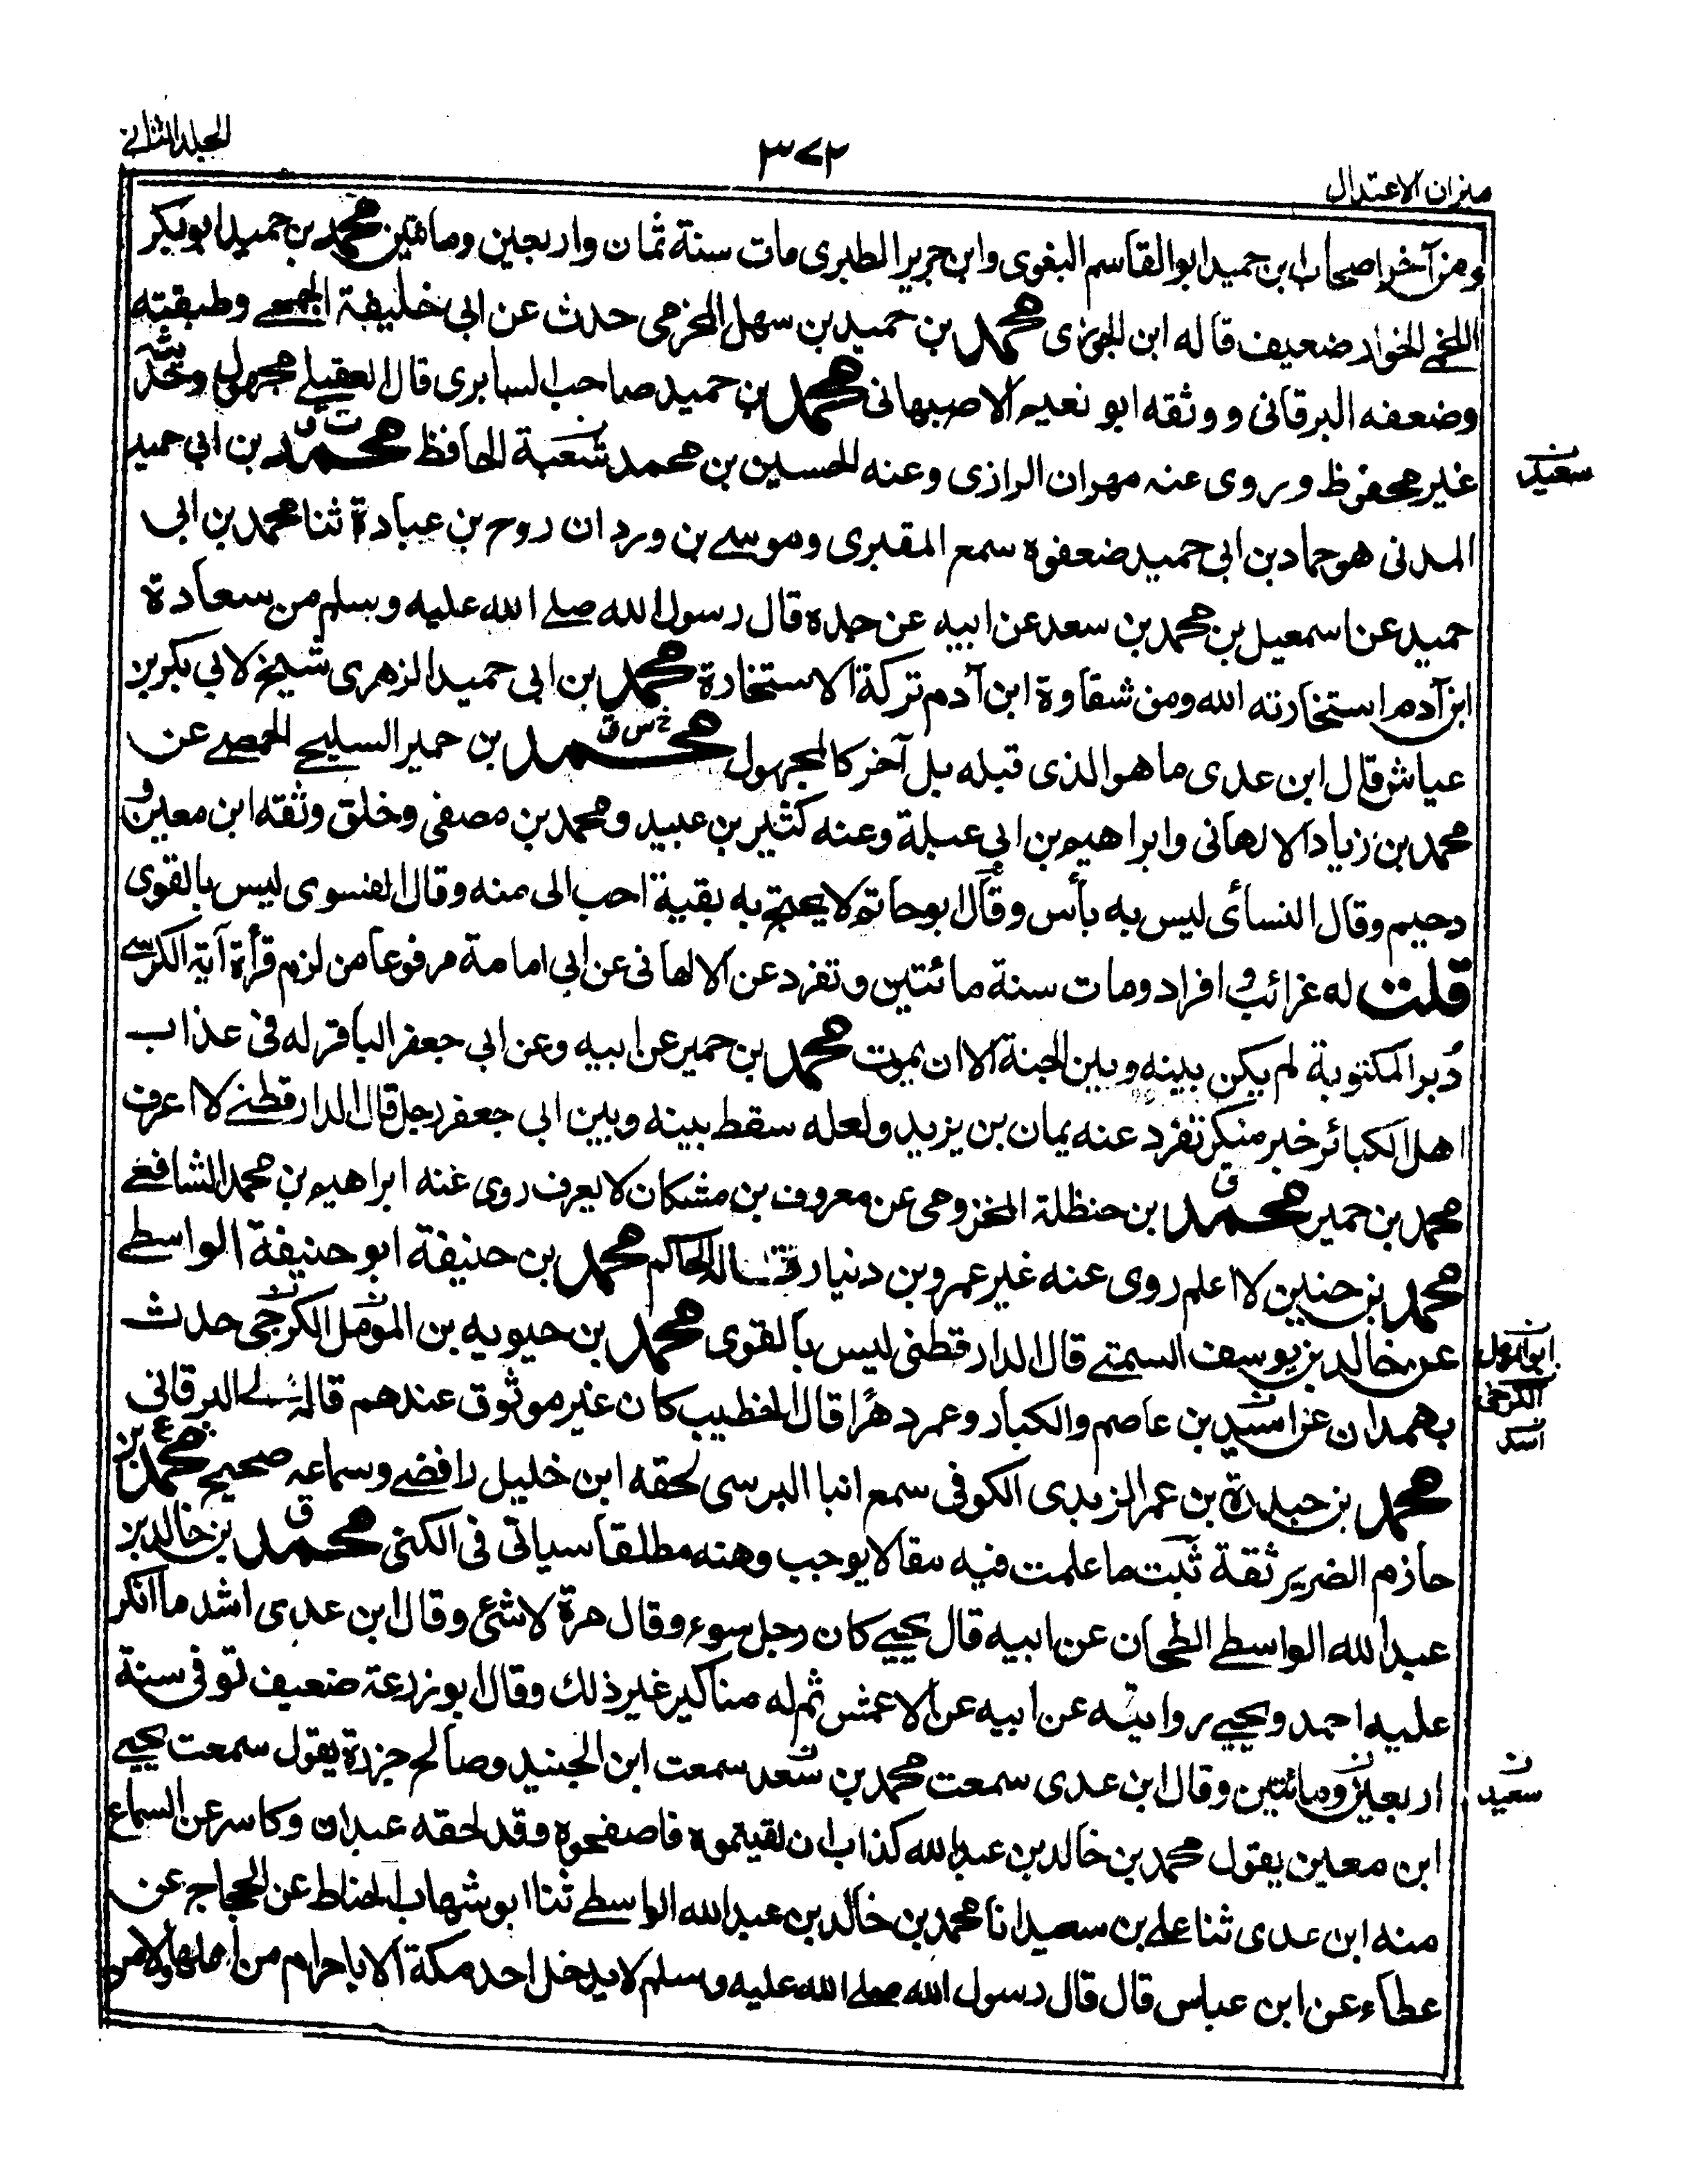 ميزان الاعتدال
٣٧٢
المجلد الثاني
ومن آخر اصحاب ابن حميد ابو القاسم البغوى وابن جرير الطبرى مات سنة ثمان واربعين ومائتين محمد بن حميد ابو بكر
اللخمي الخزار ضعيف قاله ابن الجوزى محمد بن حميد بن سهل المخرمى حدث عن ابى خليفة الجمحى وطبقته
وضعفه البرقانى ووثقه ابو نعيم الاصبهانى محمد بن حميد صاحب السابرى قال العقيلے مجهول وحديثه
غير محفوظ وروى عنه مهران الرازى وعنه الحسين بن محمد شعبة الحافظ محمد بن ابى حميد
سعيد
المدنى هو حماد بن ابى حميد ضعفوه سمع المقبرى وموسے بن وردان روح بن عبادة ثنا محمد بن ابى
حميد عن اسمعيل بن محمد بن سعد عن ابيه عن جده قال رسول الله صلے الله عليه وسلم من سعادة
ابن آدم استخارته الله ومن شقاوة ابن آدم تركة الاستخارة محمد بن ابى حميد الزهرى شيخ لابي بكر بن
عياش قال ابن عدى ما هو الذى قبله بل آخر كالمجهول محمد بن حمير السليحے الحمصے عن
محمد بن زياد الالهانى وابراهيم بن ابى عبلة وعنه كثير بن عبيد ومحمد بن مصفى وخلق وثقه ابن معين و
دحيم وقال النسائى ليس به بأس وقال ابو حاتم لا يحتج به بقية احب الى منه وقال الفسوى ليس بالقوى
قلت له غرائب وافراد ومات سنة مائتين وتفرد عن الالهانى عن ابى امامة مرفوعا من لزم قرأة آية الكرسے
دُبر المكتوبة لم يكن بينه وبين الجنة الا ان يموت محمد بن حمير عن ابيه وعن ابى جعفر الباقر له فى عذاب
اهل الكبائر خبر منكر تفرد عنه يمان بن يزيد ولعله سقط بينه وبين ابى جعفر رجل قال الدارقطنے لا اعرف
محمد بن حمير محمد بن حنظلة المخزومى عن معروف بن مشكان لا يعرف روى عنه ابراهيم بن محمد الشافعے
محمد بن حنين لا اعلم روى عنه غير عمرو بن دنيار قاله الحاكم محمد بن حنيفة ابو حنيفة الواسطے
عن خالد بن يوسف السمتے قال الدارقطنى ليس بالقوى محمد بن حيويه بن المؤمل الكرجى حدث
الكرخى
بهمدان عن اسيد بن عاصم والكبار وعمر دهرا قال الخطيب كان غير موثوق عندهم قاله لے البرقانى
اسد
محمد بن حيدرة بن عمر الزيدى الكوفى سمع انبا البرسى لحقه ابن خليل رافضے وسماعه صحيح محمد بن
حازم الضرير ثقة ثبت ما علمت فيه مقالا يوجب وهنه مطلقا سياتى فى الكنى محمد بن خالد بن
عبد الله الواسطے الطحان عن ابيه قال يحيے كان رجل سوء وقال مرة لا شئ وقال ابن عدى اشد ما انكر
عليه احمد ويحيے روايته عن ابيه عن الاعمش ثم له مناكير غير ذلك وقال ابو زرعة ضعيف توفى سنة
اربعين ومائتين وقال ابن عدى سمعت محمد بن سعد سمعت ابن الجنيد وصالح جزرة يقول سمعت يحيے
سعيد
ابن معين يقول محمد بن خالد بن عبد الله كذاب ان لقيتموه فاصفعوه وقد لحقه عبدان وكاسر عن السماع
منه ابن عدى ثنا علے بن سعيد انا محمد بن خالد بن عبد الله الواسطے ثنا ابو شهاب الحناط عن الحجاج عن
عطاء عن ابن عباس قال قال رسول الله صلے الله عليه وسلم لا يدخل احد مكة الا باحرام من اهلها ولا من